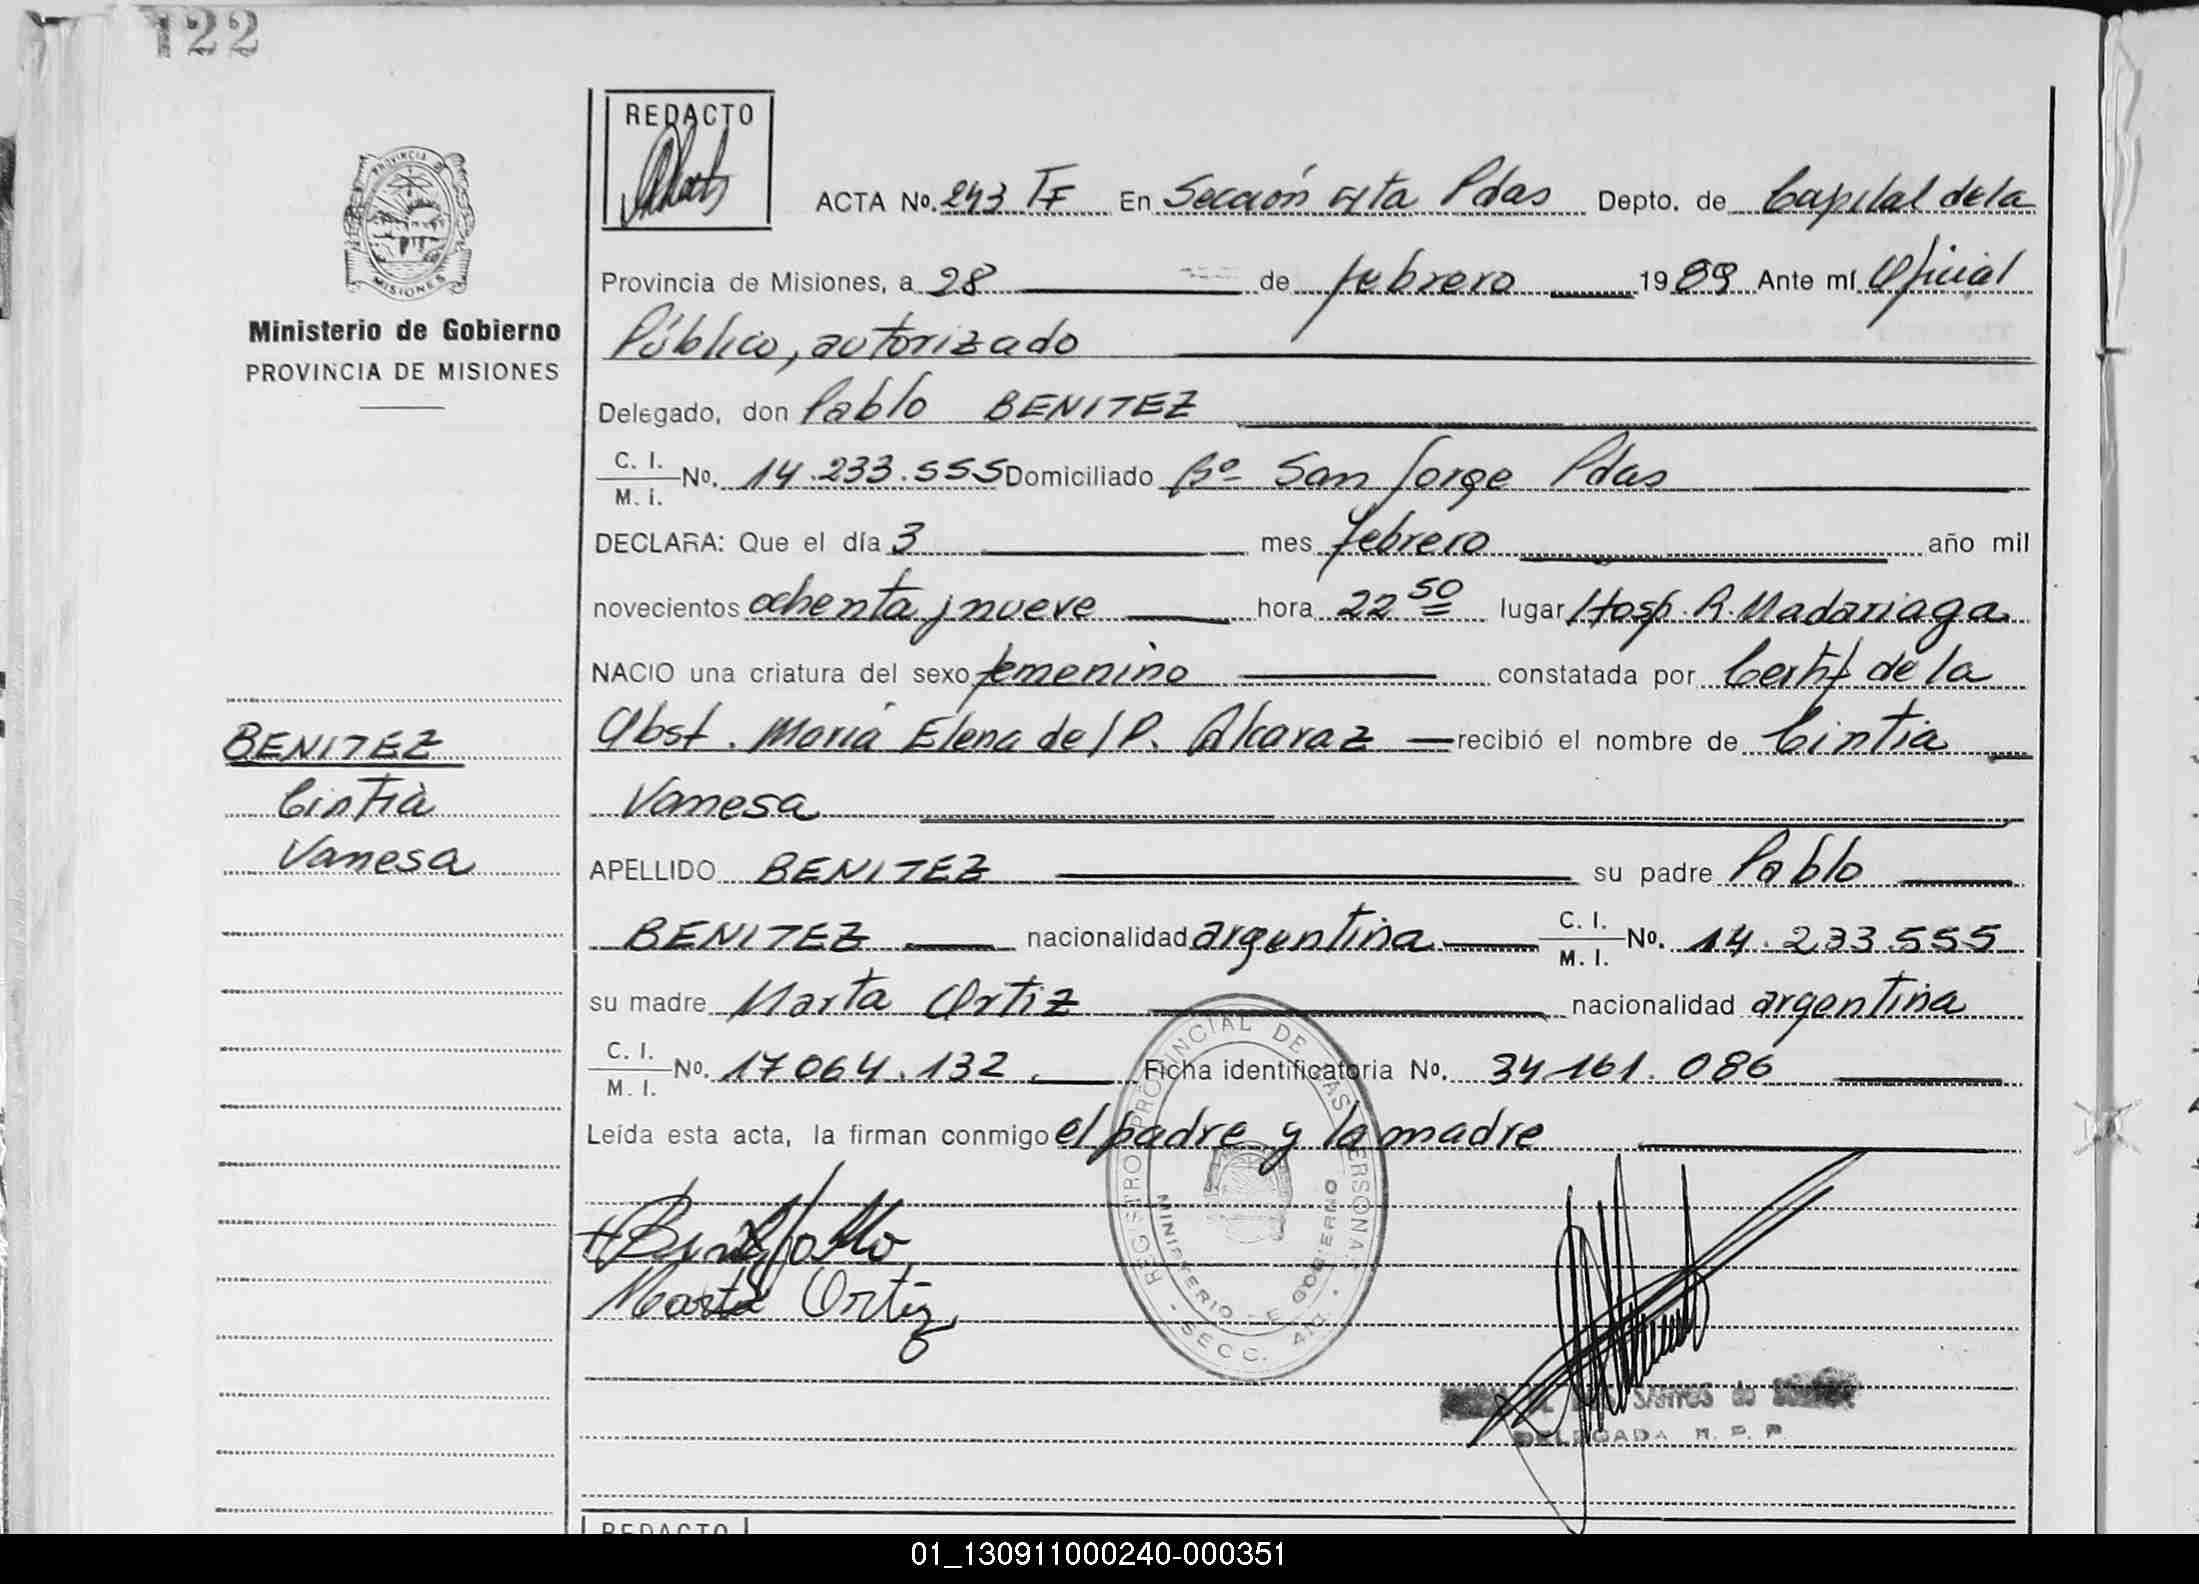 122
REDACTO
ACTA No. 243 TF En Sección 4ta Pdas Depto. de Capital de la
Provincia de Misiones, a 28 de febrero 1989 Ante mí Oficial
Público, autorizado
Delegado, don Pablo BENITEZ
C. I. M. I. No. 14.233.555 Domiciliado Bº San Jorge Pdas
DECLARA: Que el día 3 mes febrero año mil
novecientos ochenta y nueve hora 22 50 lugar Hosp. R. Madariaga
NACIO una criatura del sexo femenino constatada por Certif de la
Obst. María Elena del P. Alcaraz recibió el nombre de Cintia
Vanesa
APELLIDO BENITEZ su padre Pablo
BENITEZ nacionalidad argentina C. I. M. I. No. 14.233.555
su madre Marta Ortiz nacionalidad argentina
C. I. M. I. No. 17064.132. Ficha identificatoria No. 34161.086
Leída esta acta, la firman conmigo el padre y la madre
Marta Ortiz
PROVINCIA DE
MISIONES
Ministerio de Gobierno
PROVINCIA DE MISIONES
BENITEZ
Cintia
Vanesa
REGISTRO PROVINCIAL DE LAS PERSONAS
MINISTERIO DE GOBIERNO
SECC. 4ta.
SANTOS de
DELEGADA R. P. P.
REDACTO
01_130911000240-000351